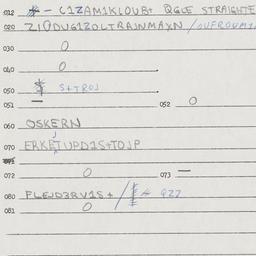 012 * - C1ZAM1KLOUB+ QGCE STRAIGHTE
020 Z10DUG1ZOLTRAJNMAXN /
030 0
040 0
050 * S+TROJ
051 —
052 0
060 OSKERN
070 ERKETUPD1S+TOJP
072 0
073 —
080 FLEJD3RV1S+ / QZZ
081 0